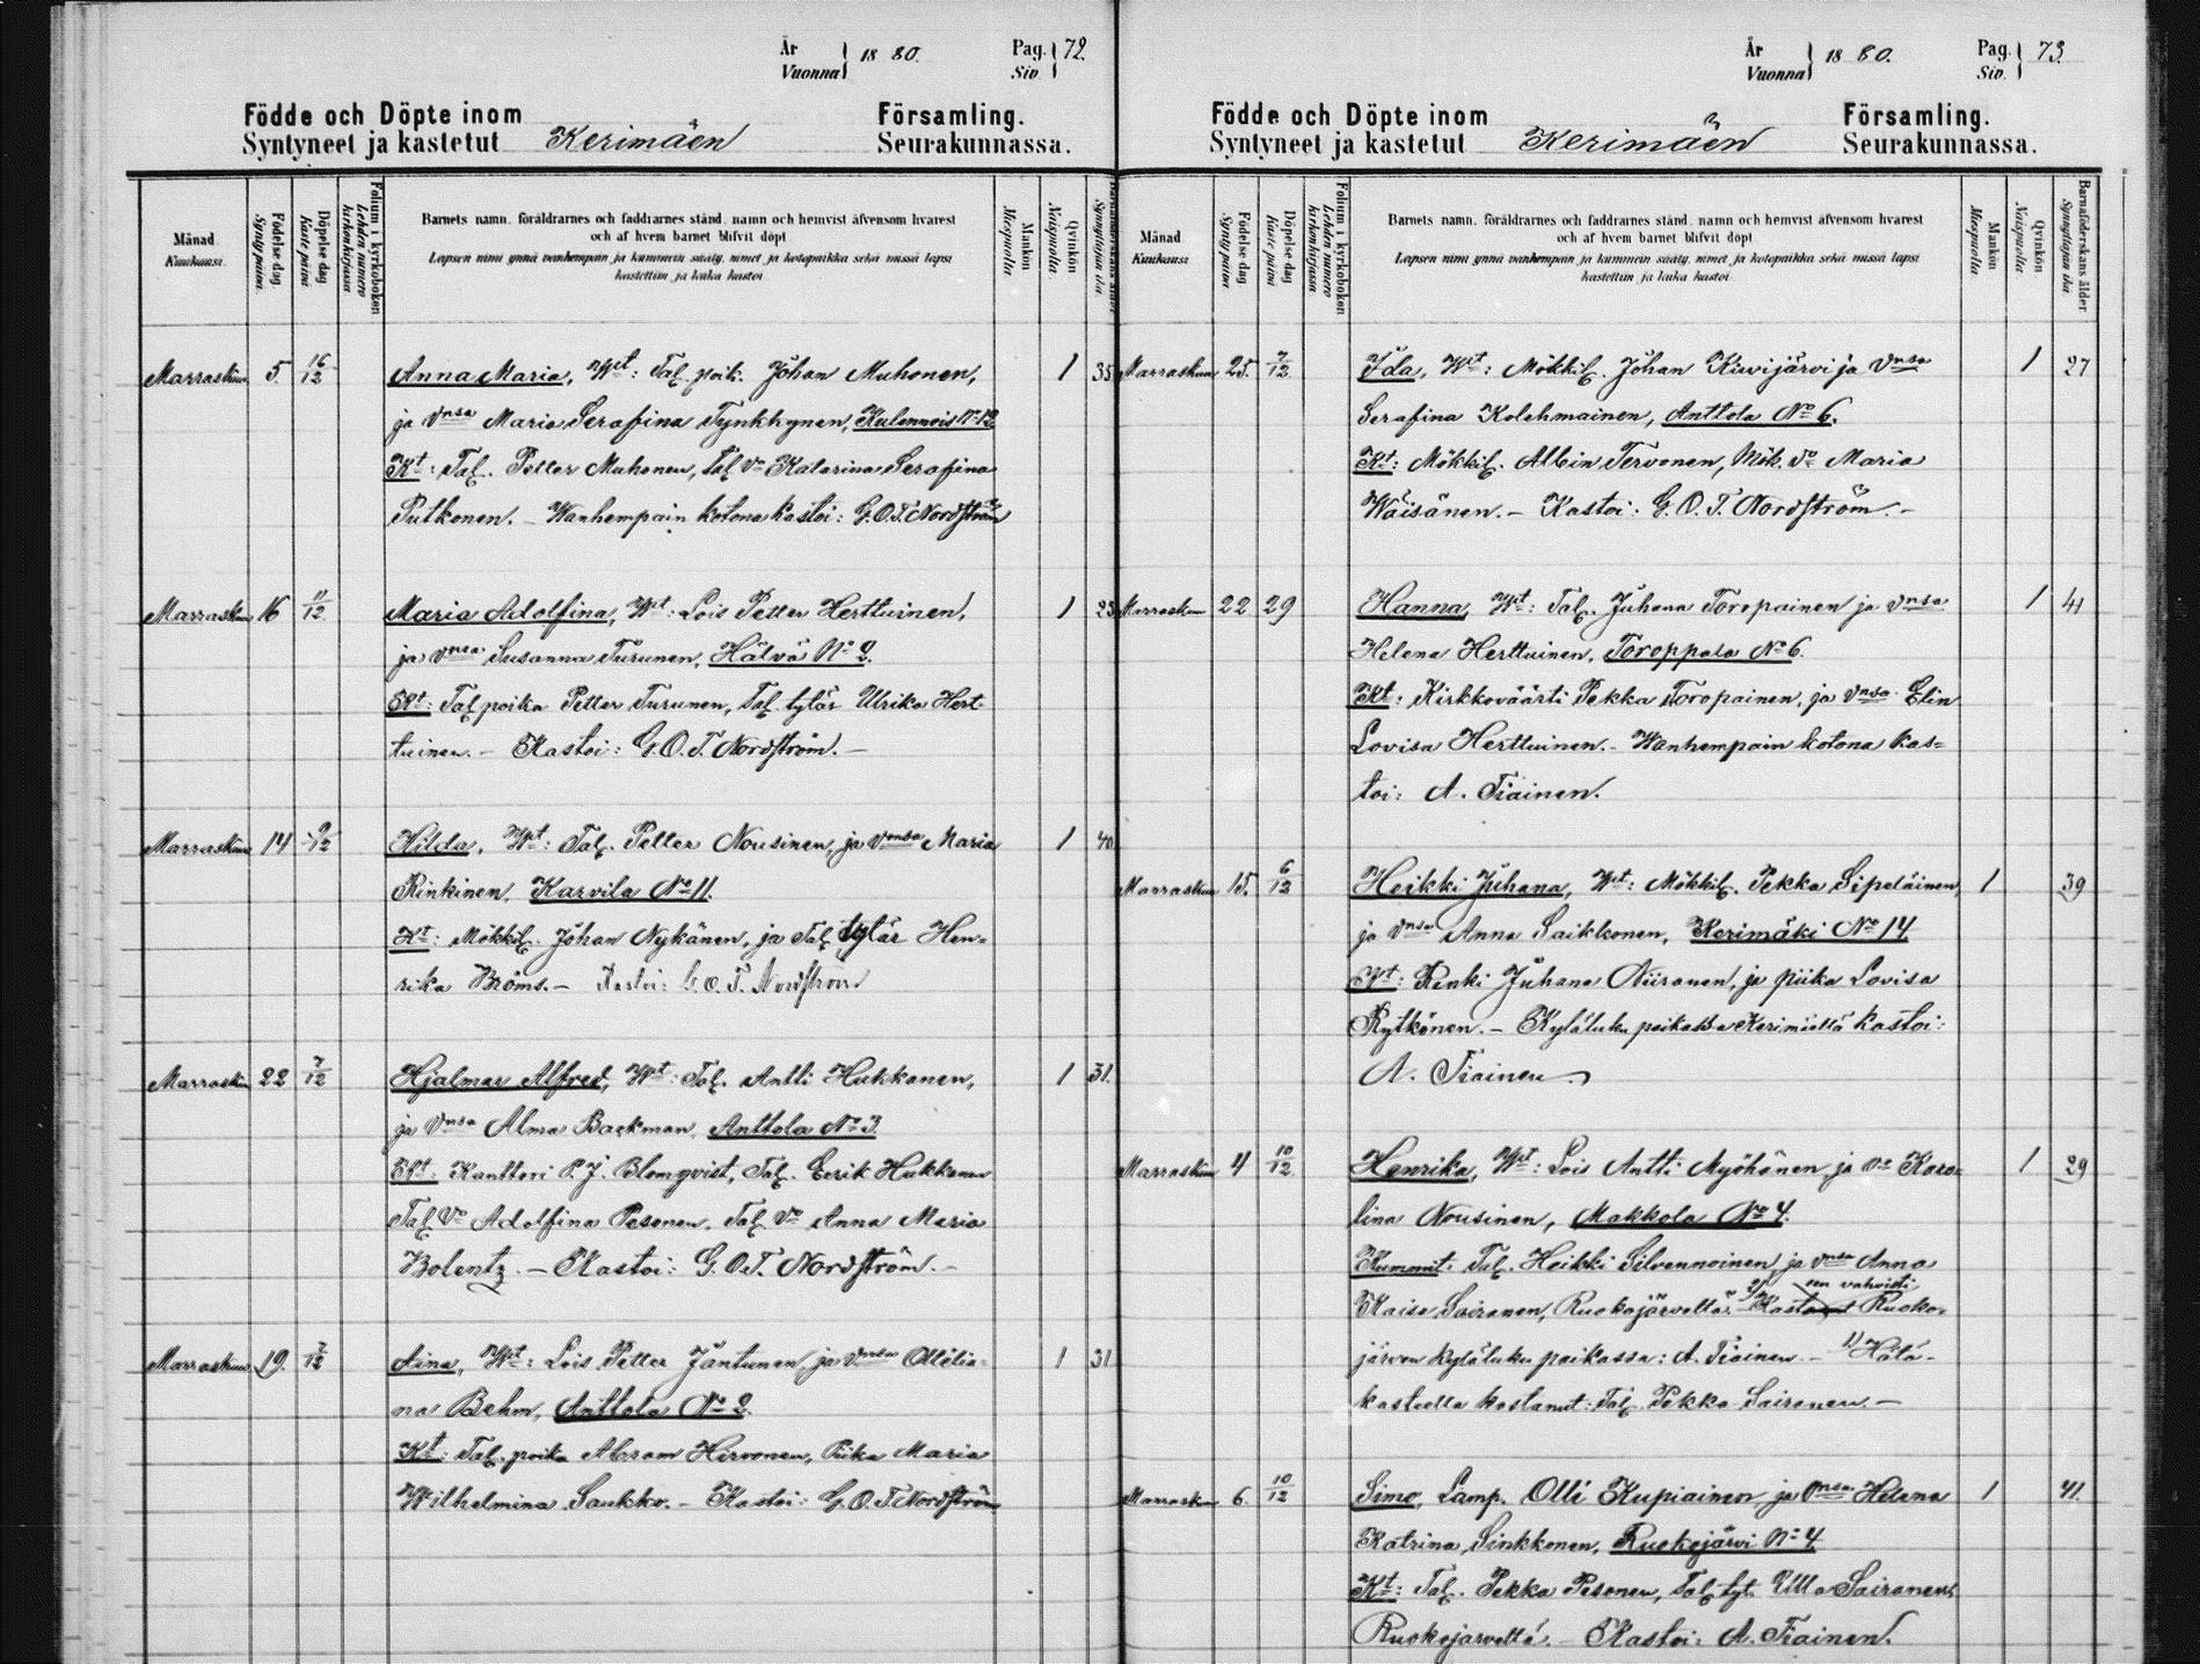 År
Vuonna
1880.
Pag.
Siv.
72.
Födde och Döpte inom
Syntyneet ja kastetut
Kerimäen
Församling.
Seurakunnassa.
Månad
Kuukausi.
Födelse dag
Synty päivä
Döpelse dag
Kaste päivä
Folium i kyrkoboken
Lehden numero
kirkonkirjassa
Barnets namn, föräldrarnes och faddrarnes stånd, namn och hemvist äfvensom hvarest
och af hvem barnet blifvit döpt
Lapsen nimi ynnä vanhempain ja kummein sääty, nimet ja kotopaikka sekä missä lapsi
kastettiin ja kuka kastoi
Mankön
Miespuolta
Qvinkön
Naispuolta
Synnyttäjän ikä
Marraskuu 5. 16/12 Anna Maria, Wht: Tal. poik. Johan Muhonen, 1 35
ja vnsa Maria Serafina Tynkkynen, Kulennois No 12
Kt: Tal. Petter Muhonen, Tal. vo Katarina Serafina
Putkonen. – Wanhempain kotona kastoi: G.O.T. Nordström
Marraskuu 16 11/12 Maria Adolfina, Wht: Lois Petter Herttuinen, 1 23
ja vnsa Susanna Turunen, Hälvä No 2.
Kt: Tal. poika Petter Turunen, Tal. tytär Ulrika Hert-
tuinen. – Kastoi: G.O.T. Nordström. –
Marraskuu 14 9/12 Hilda, Wht: Tal. Petter Nousinen, ja vnsa Maria 1 40
Rinkinen, Karvila No 11.
Kt: Mökkil. Johan Nykänen, ja Tal. tytär Hen-
rika Broms. – Kastoi: G.O.T. Nordström
Marraskuu 22 7/12 Hjalmar Alfred, Wht: Tal. Antti Hukkanen, 1 31.
ja vnsa Alma Backman, Anttola No 3
Kt: Kanttori P.J. Blomqvist, Tal. Eerik Hukkanen
Tal. vo Adolfina Pesonen, Tal. vo Anna Maria
Bolentz. – Kastoi: G.O.T. Nordström. –
Marraskuu 19. 7/12 Aina, Wht: Lois Petter Jantunen, ja vnsa Ottilia- 1 31
na Behm, Anttola No 2.
Kt: Tal. poika Abram Hirvonen, Piika Maria
Wilhelmina Saukko. – Kastoi: G.O.T. Nordström
År
Vuonna
1880.
Pag.
Siv.
73.
Födde och Döpte inom
Syntyneet ja kastetut
Kerimäen
Församling.
Seurakunnassa.
Månad
Kuukausi
Födelse dag
Synty päivä
Döpelse dag
Kaste päivä
Folium i kyrkoboken
Lehden numero
kirkonkirjassa
Barnets namn, föräldrarnes och faddrarnes stånd, namn och hemvist äfvensom hvarest
och af hvem barnet blifvit döpt
Lapsen nimi ynnä vanhempain ja kummein sääty, nimet ja kotopaikka sekä missä lapsi
kastettiin ja kuka kastoi
Mankön
Miespuolta
Qvinkön
Naispuolta
Barnaföderskans ålder
Synnyttäjän ikä
Marraskuu 25. 7/12 Ida, Wht: Mökkil. Johan Kiwijärvi ja vnsa 1 27
Serafina Kolehmainen, Anttola No 6.
Kt: Mökkil. Albin Tervonen, Mök. vo Maria
Wäisänen. – Kastoi: G.O.T. Nordström. –
Marraskuu 22 29 Hanna, Wht: Tal. Juhana Toropainen ja vnsa 1 41
Helena Herttuinen, Toroppala No 6.
Kt: Kirkkoväärti Pekka Toropainen, ja vnsa Elin
Lovisa Herttuinen. – Wanhempain kotona kas=
toi: A. Tiainen.
Marraskuu 15. 6/12 Heikki Juhana, Wht: Mökkil. Pekka Sipeläinen, 1 39
ja vnsa Anna Saikkonen, Kerimäki No 14
Kt: Renki Juhana Niiranen, ja piika Lovisa
Rytkönen. – Kyläluku paikassa Kerimäellä kastoi:
A. Tiainen
Marraskuu 4 10/12 Henrika, Wht: Lois Antti Myöhänen, ja vo Karo= 1 29
lina Nousinen, Makkola No 4.
Kummit: Tal. Heikki Silvennoinen, ja vnsa Anna
sen vahvisti
Kaisa Sairanen, Ruokojärveltä. – 2) Kastanut Ruoko=
järven kyläluku paikassa: A. Tiainen. – 1) Hätä-
kasteella kastanut: Tal. Pekka Sairanen. –
Marraskuu 6. 10/12 Simo, Lamp. Olli Kupiainen, ja vnsa Helena 1 41.
Katrina Sinkkonen, Ruokojärvi No 4
Kt: Tal. Pekka Pesonen, Tal. tyt. Ulla Sairanen,
Ruokojärveltä. – Kastoi: A. Tiainen.